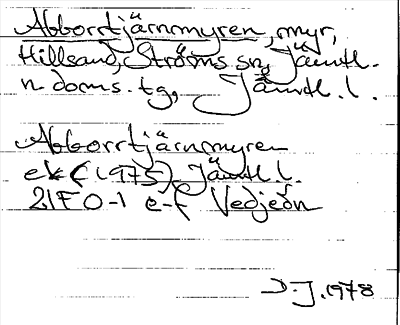 Abborrtjärnmyren, myr,
Hillsand, Ströms sn, Jämtl.
n. doms. tg, Jämtl. l.
Abborrtjärnmyren
ek (1975) Jämtl. l.
21F 0-1 e-f Vedjeön
D.J. 1978